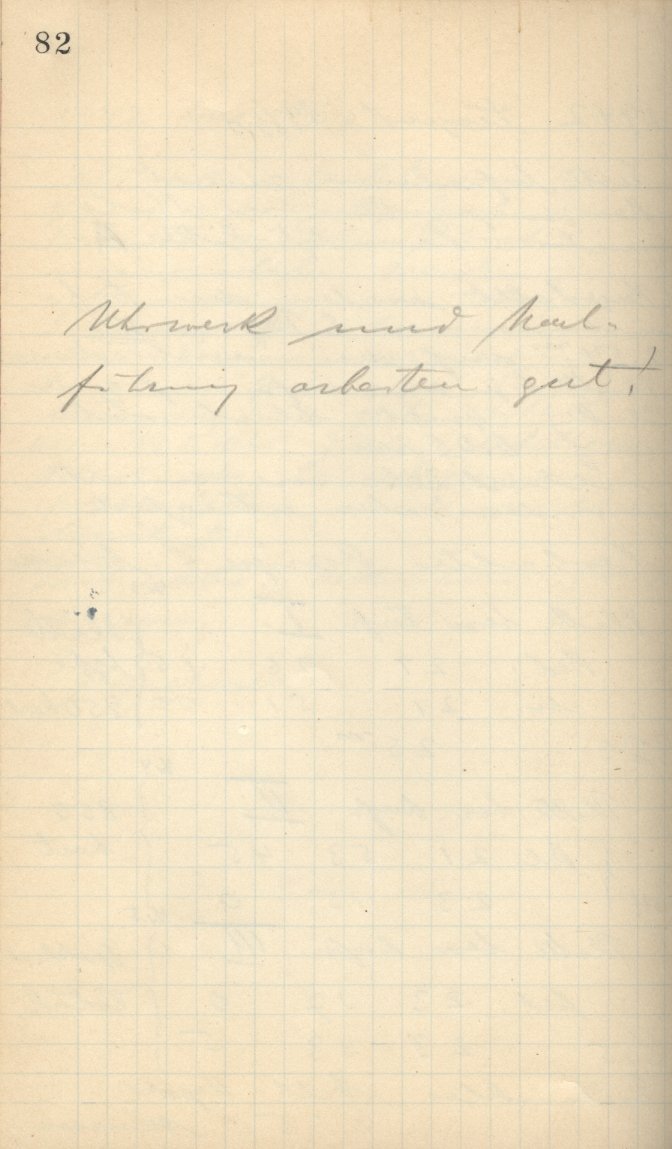 82
Uhrwerk und Nach-
führung arbeiten gut!